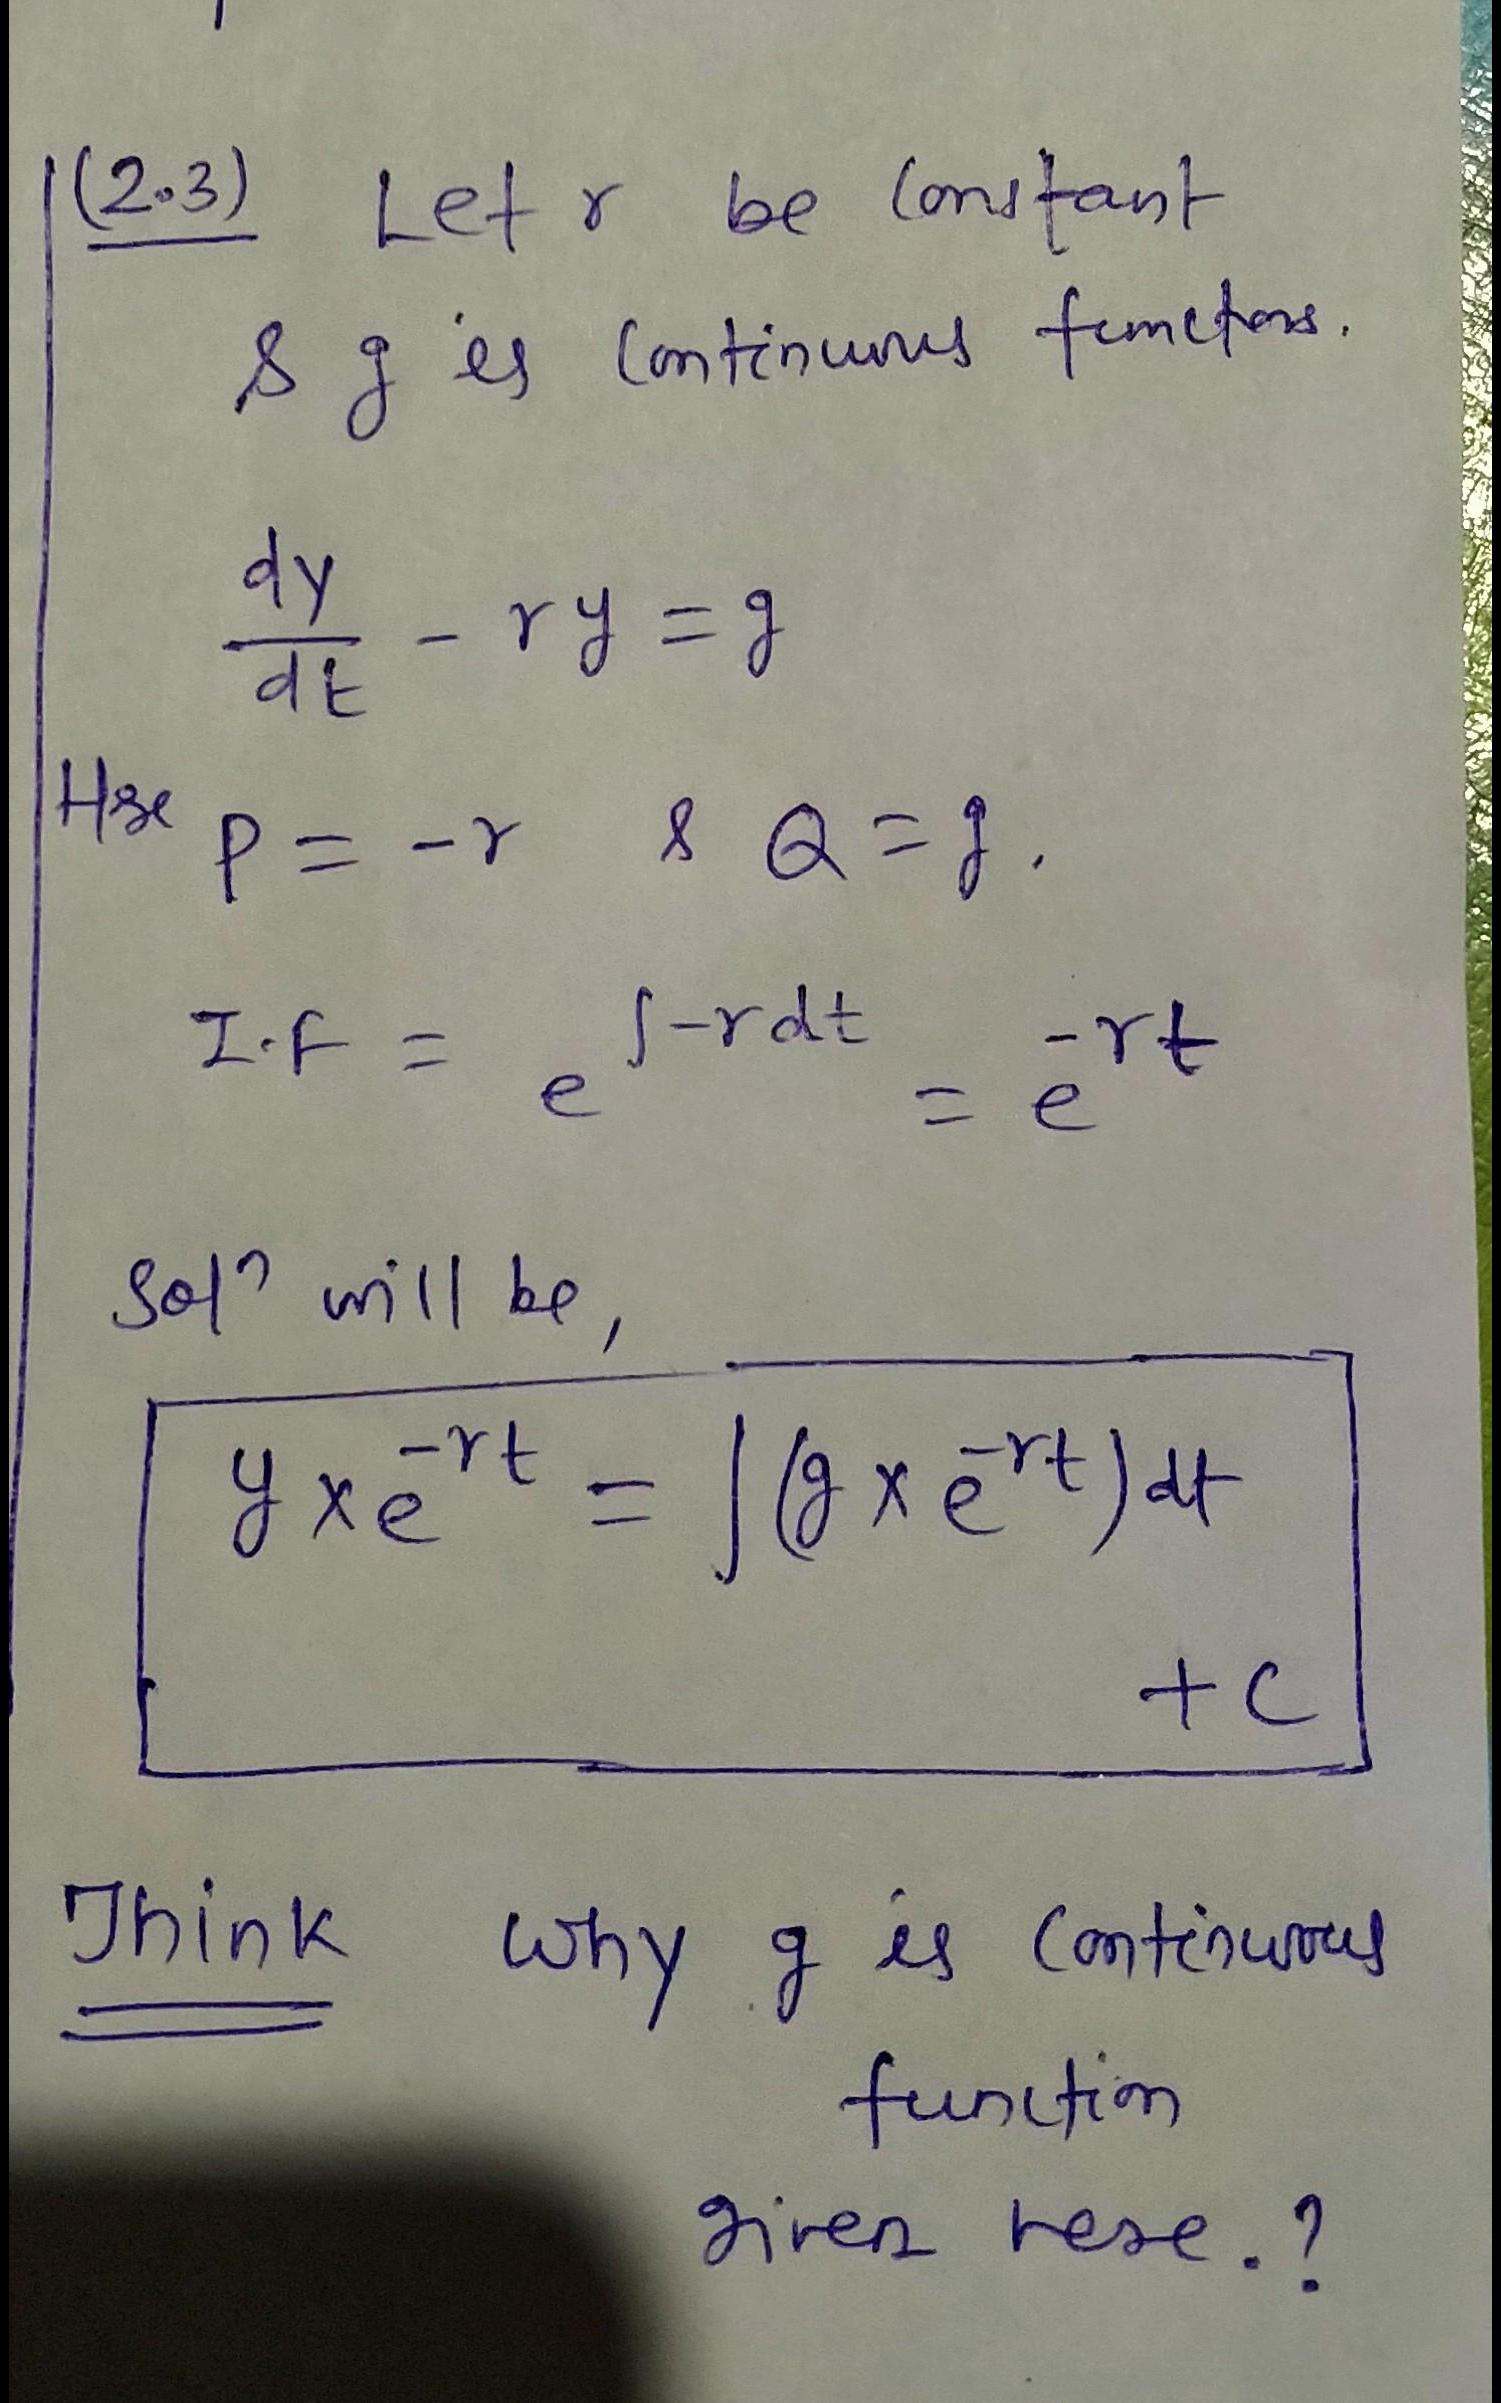 (2.3) Let r be constant
& g is continuous functions.
dy/dt - ry = g
Here P = -r & Q = g.
I.F = e^∫-rdt = e^-rt
Solⁿ will be,
y × e^-rt = ∫(g × e^-rt) dt
+ c
Think why g is continuous
function
given here.?